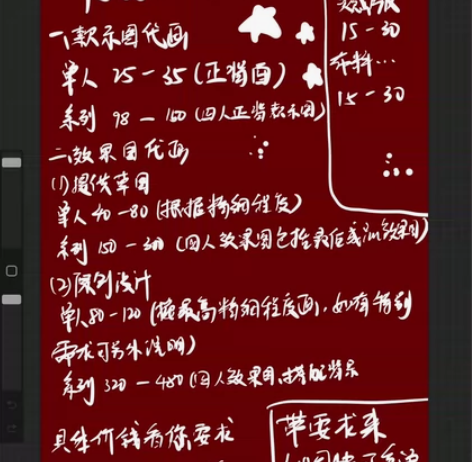 一、款式图代画
单人 25-35 (正背面)
系列 98-160 (四人正背款式图)
二、效果图代画
(1)提供草图
单人40-80 (根据精细程度)
系列 150-300 (四人效果图包括最后或汇效果图)
(2)原创设计
单人80-120 (按最高精细程度画,如有特别
需求可另外说明)
系列 320-480 (四人效果图,搭配背景
具体价钱看你要求
15-30
布料…
15-30
带要求来